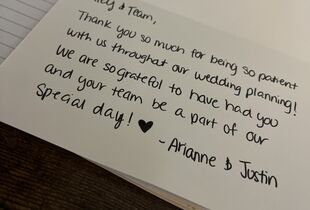 & Team,
Thank you so much for being so patient
with us throughout our wedding planning!
We are so grateful to have had you
and your team be a part of our
Special day! ♥
- Arianne & Justin